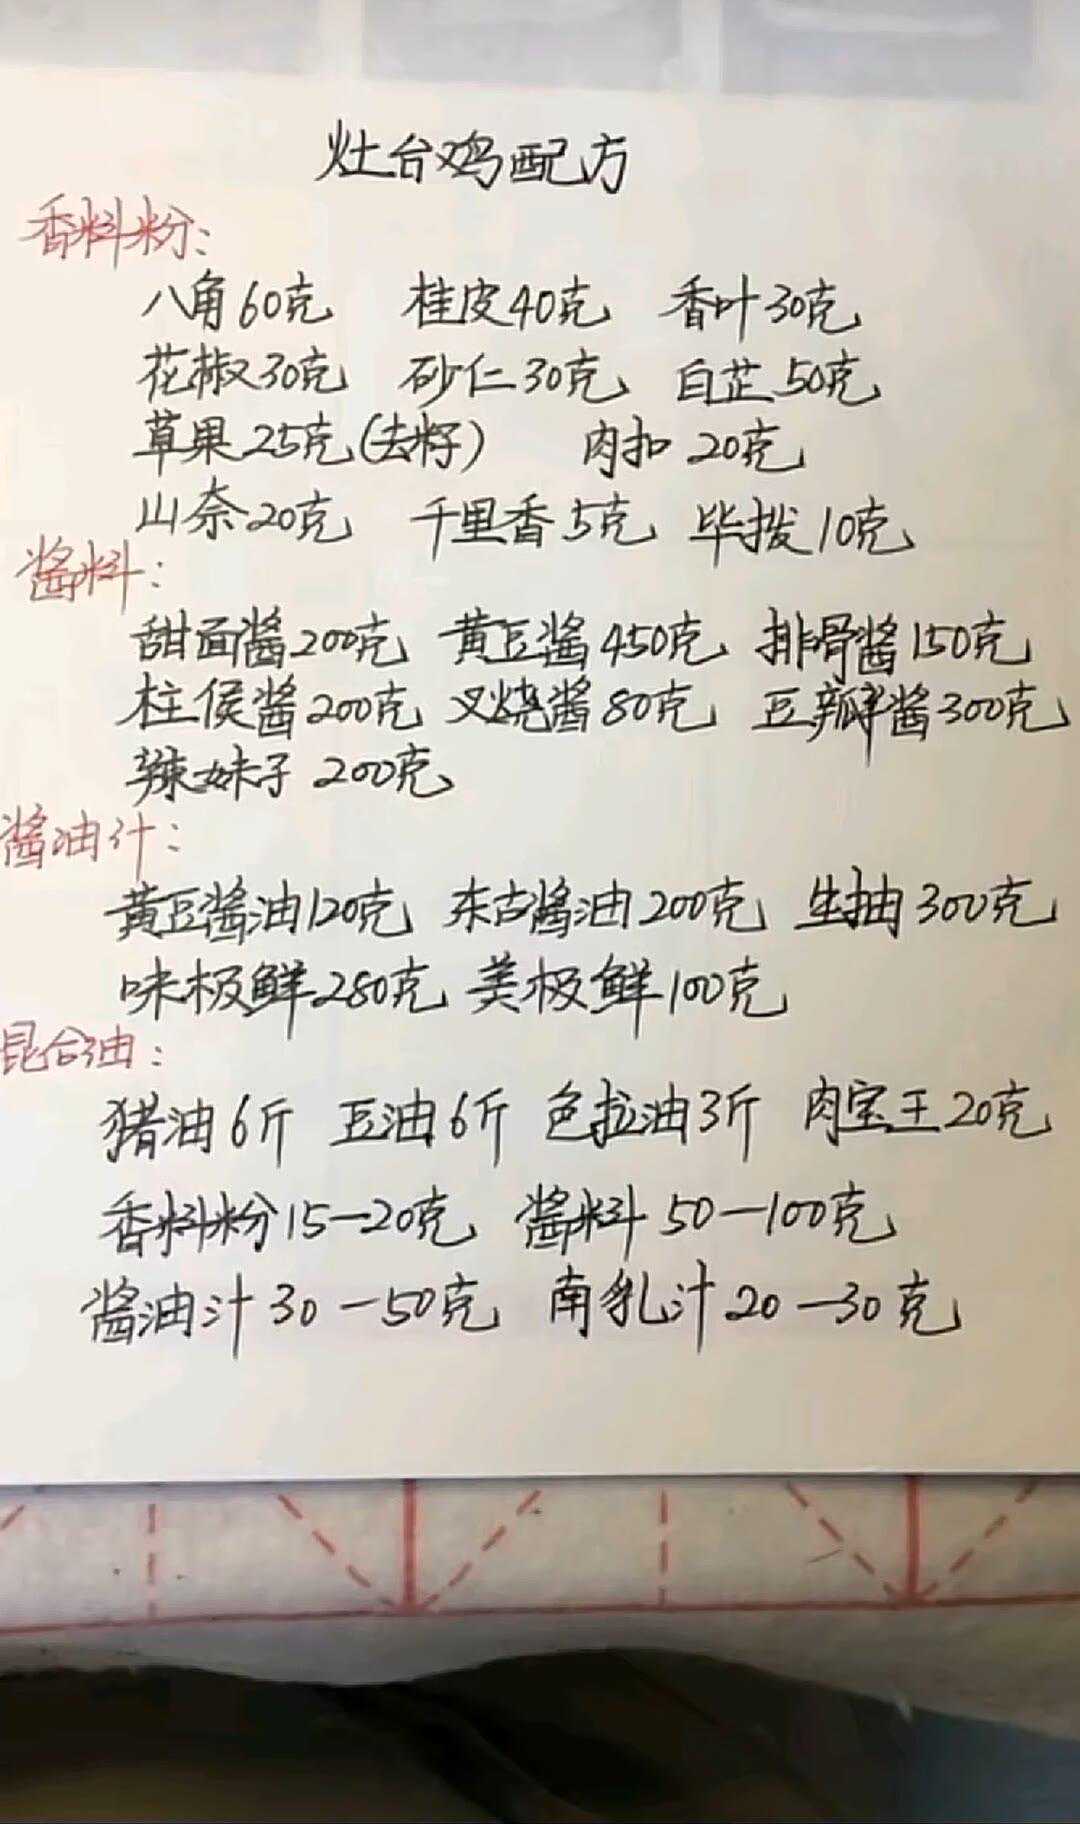 灶台鸡配方
香料粉:
八角60克 桂皮40克 香叶30克
花椒30克 砂仁30克 白芷50克
草果25克(去籽) 肉扣20克
山奈20克 千里香5克 毕拨10克
酱料:
甜面酱200克 黄豆酱450克 排骨酱150克
柱侯酱200克 叉烧酱80克 豆瓣酱300克
辣妹子200克
酱油汁:
黄豆酱油120克 东古酱油200克 生抽300克
味极鲜280克 美极鲜100克
昆合油:
猪油6斤 豆油6斤 色拉油3斤 肉宝王20克
香料粉15—20克 酱料50—100克
酱油汁30—50克 南乳汁20—30克